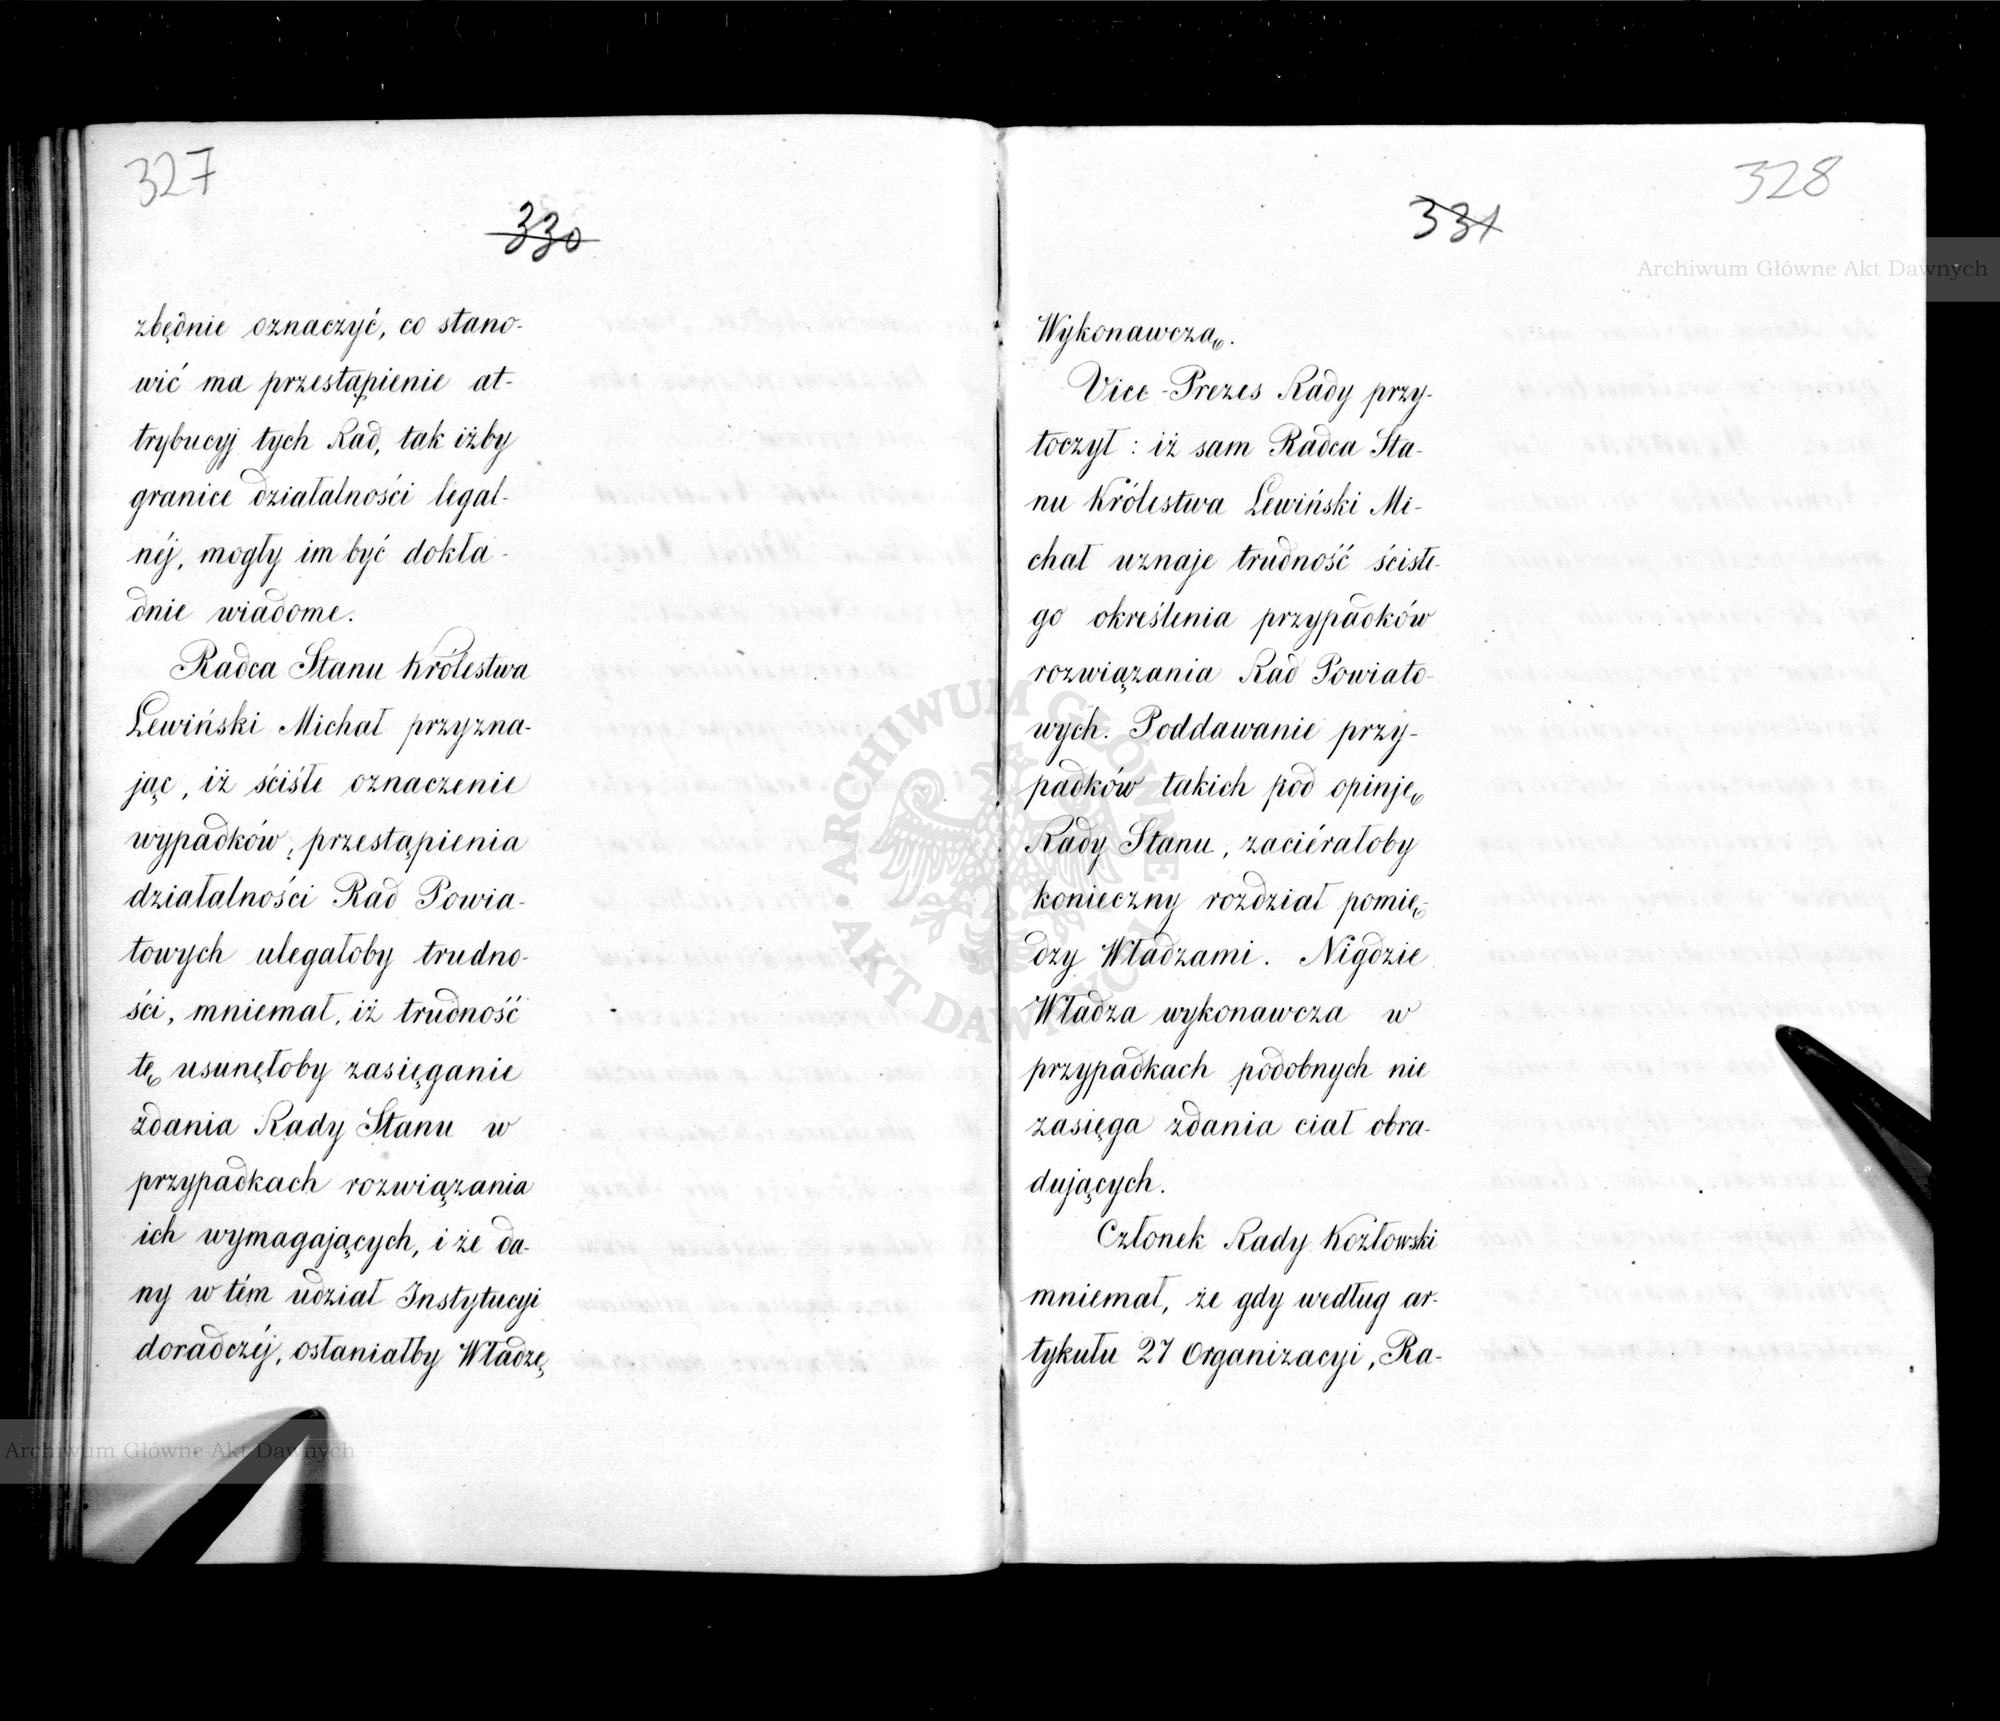 327
330
zbędnie oznaczyć, co stano-
wić ma przestąpienie at-
trybucyj tych Rad, tak iżby
granice działalności legal-
néj, mogły im być dokła-
dnie wiadome.
Radca Stanu Królestwa
Lewiński Michał przyzna-
jąc, iż ściśłe oznaczenie
wypadków, przestąpienia
działalności Rad Powia-
towych ulegałoby trudno-
ści, mniemał, iż trudność
tę usunęłoby zasięganie
zdania Rady Stanu w
przypadkach rozwiązania
ich wymagających, i że da-
ny w tém udział Instytucyi
doradczéj, osłaniałby Władzę
328
331
Wykonawczą.
Vice-Prezes Rady przy-
toczył: iż sam Radca Sta-
nu Królestwa Lewiński Mi-
chał uznaje trudność ścisłe-
go określenia przypadków
rozwiązania Rad Powiato-
wych. Poddawanie przy-
padków takich pod opinję
Rady Stanu, zaciérałoby
konieczny rozdział pomię-
dzy Władzami. Nigdzie
Władza wykonawcza w
przypadkach podobnych nie
zasięga zdania ciał obra-
dujących.
Członek Rady Kozłowski
mniemał, że gdy według ar-
tykułu 27 Organizacyi, Ra-
Archiwum Główne Akt Dawnych
Archiwum Główne Akt Dawnych
ARCHIWUM GŁÓWNE
AKT DAWNYCH